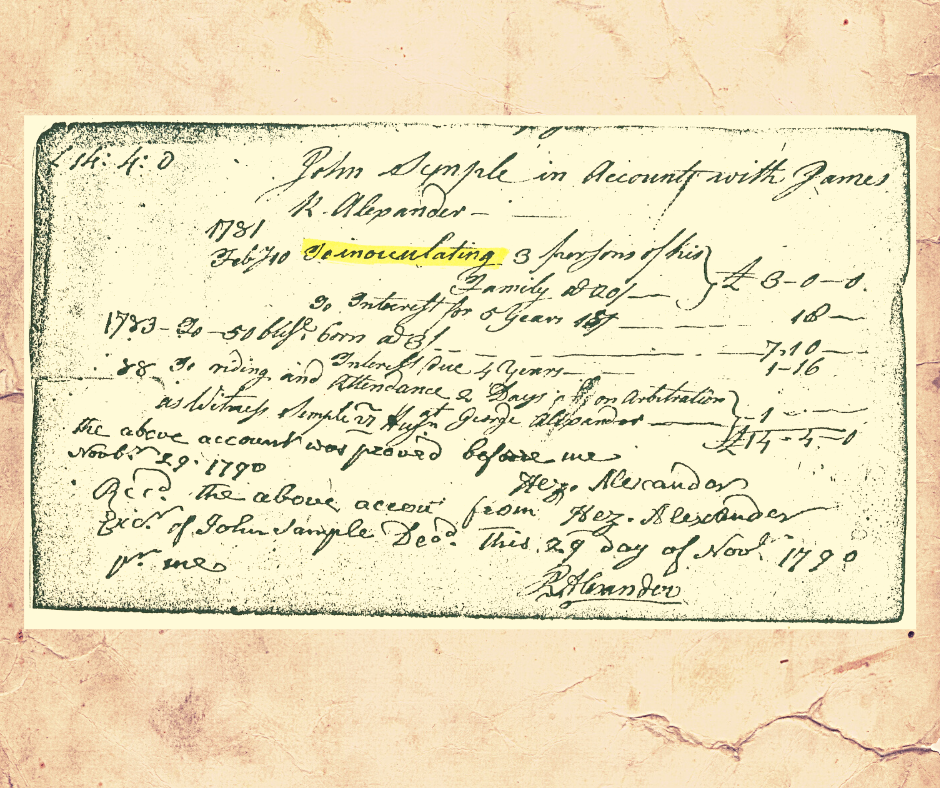 £ 14: 4: 0
John Semple in Account with James
R. Alexander –
1781
Feby 10 To inoculating 3 persons of his
Family at 20/ — £ 3-0-0.
To Interest for 5 Years — 18 —
1783 – To – 50 blls. corn at 3/ — 7-10 —
Interest due 4 Years — 1-16
88 To riding and Attendance 2 Days on Arbitration
as Witness Semple vs at George Alexander — 1 —
£14-4-0
the above account was proved before me
Novbr. 29. 1790
Hez. Alexander
Recd. the above accout from Hez. Alexander
Excr. of John Sample Decd. this 29 day of Novr. 1790
pr. me
R Alexander